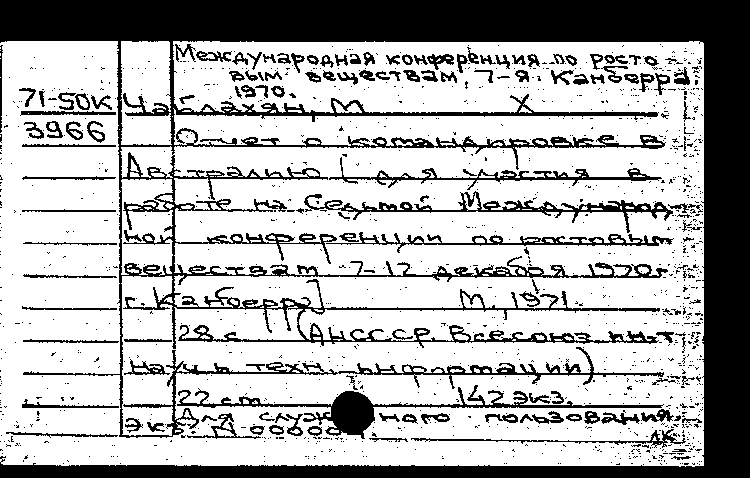 Международная конференция по росто-
вым веществам, 7-я. Канберра.
1970.
71-50К Чайлахян, М Х
3966 Отчет о командировке в
Австралию [для участия в
работе на Седьмой Международ-
ной конференции по ростовым
веществам 7-12 декабря 1970г
г. Канберра] М., 1971.
28 с (АН СССР. Всесоюз. ин-т
науч и техн. информации)
22 см 142 экз.
Для служ ного пользования.
Экз. №
лк